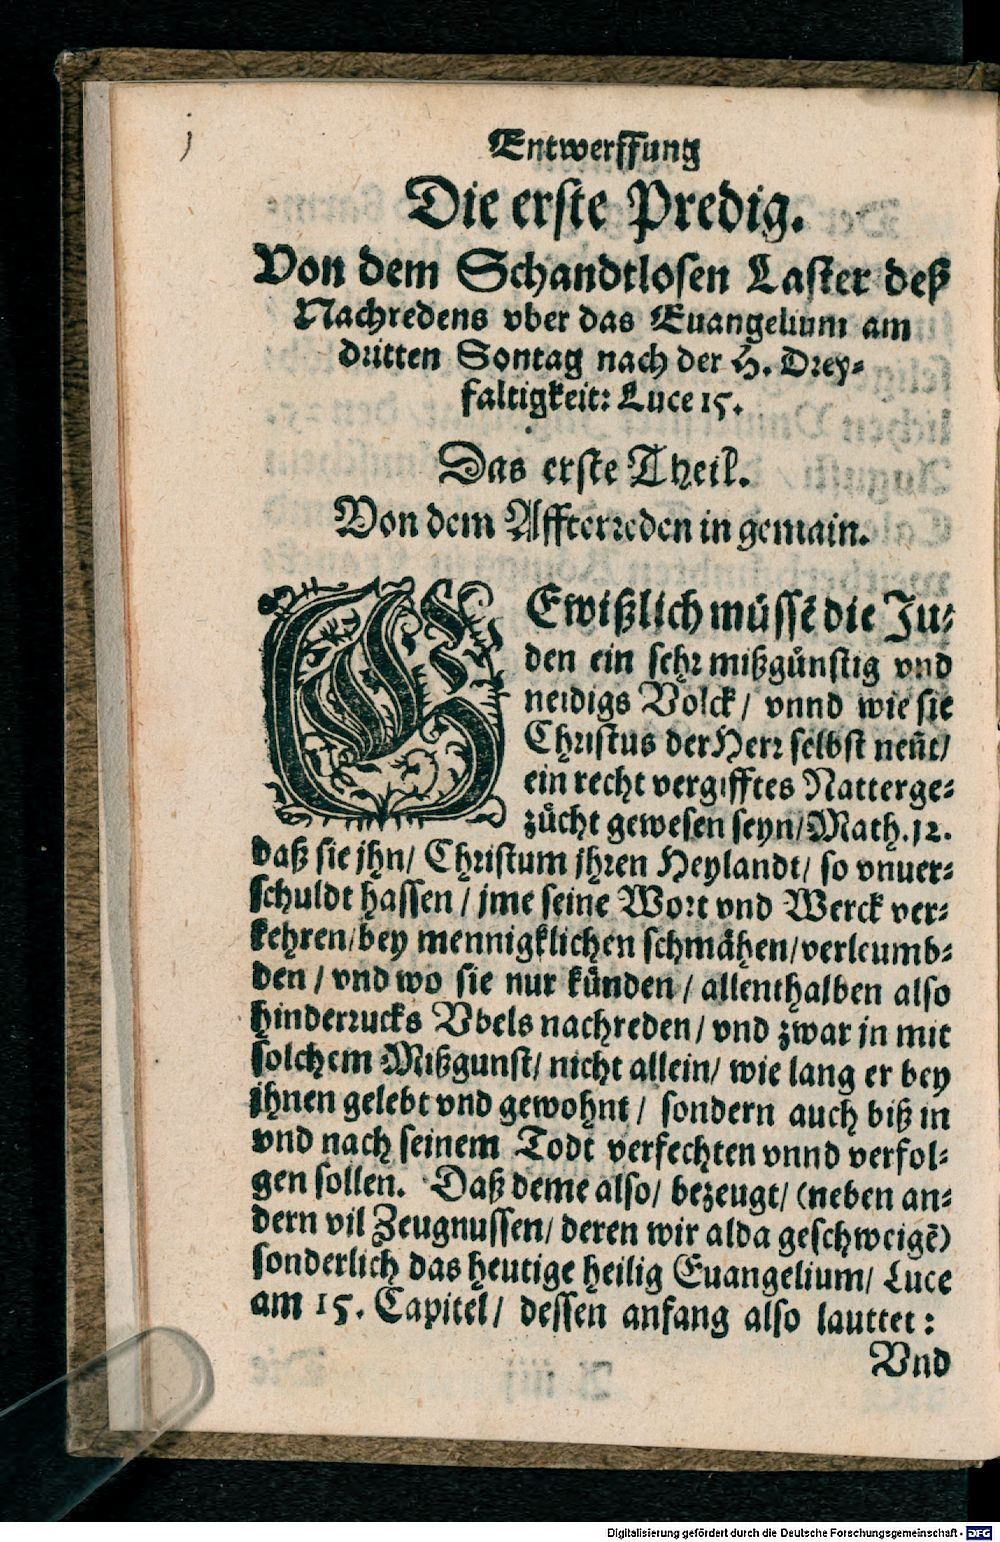 j
Entwerffung
Die erste Predig.
Von dem Schandtlosen Laster deß
Nachredens vber das Euangelium am
dritten Sontag nach der H. Drey⸗
faltigkeit: Luce 15.
Das erste Theil.
Von dem Affterreden in gemain.
GEwißlich müssē die Ju⸗
den ein sehr mißgünstig vnd
neidigs Volck/ vnnd wie sie
Christus der Herr selbst neñt/
ein recht vergifftes Natterge⸗
zücht gewesen seyn/ Math. 12.
daß sie jhn/ Christum jhren Heylandt/ so vnuer⸗
schuldt hassen/ jme seine Wort vnd Werck ver⸗
kehren/ bey mennigklichen schmähen/ verleumb⸗
den/ vnd wo sie nur künden/ allenthalben also
hinderrucks Vbels nachreden/ vnd zwar jn mit
solchem Mißgunst/ nicht allein/ wie lang er bey
jhnen gelebt vnd gewohnt/ sondern auch biß in
vnd nach seinem Todt verfechten vnnd verfol⸗
gen sollen. Daß deme also/ bezeugt/ (neben an⸗
dern vil Zeugnussen/ deren wir alda geschweigē)
sonderlich das heutige heilig Euangelium/ Luce
am 15. Capitel/ dessen anfang also lauttet:
Vnd
Digitalisierung gefördert durch die Deutsche Forschungsgemeinschaft - DFG